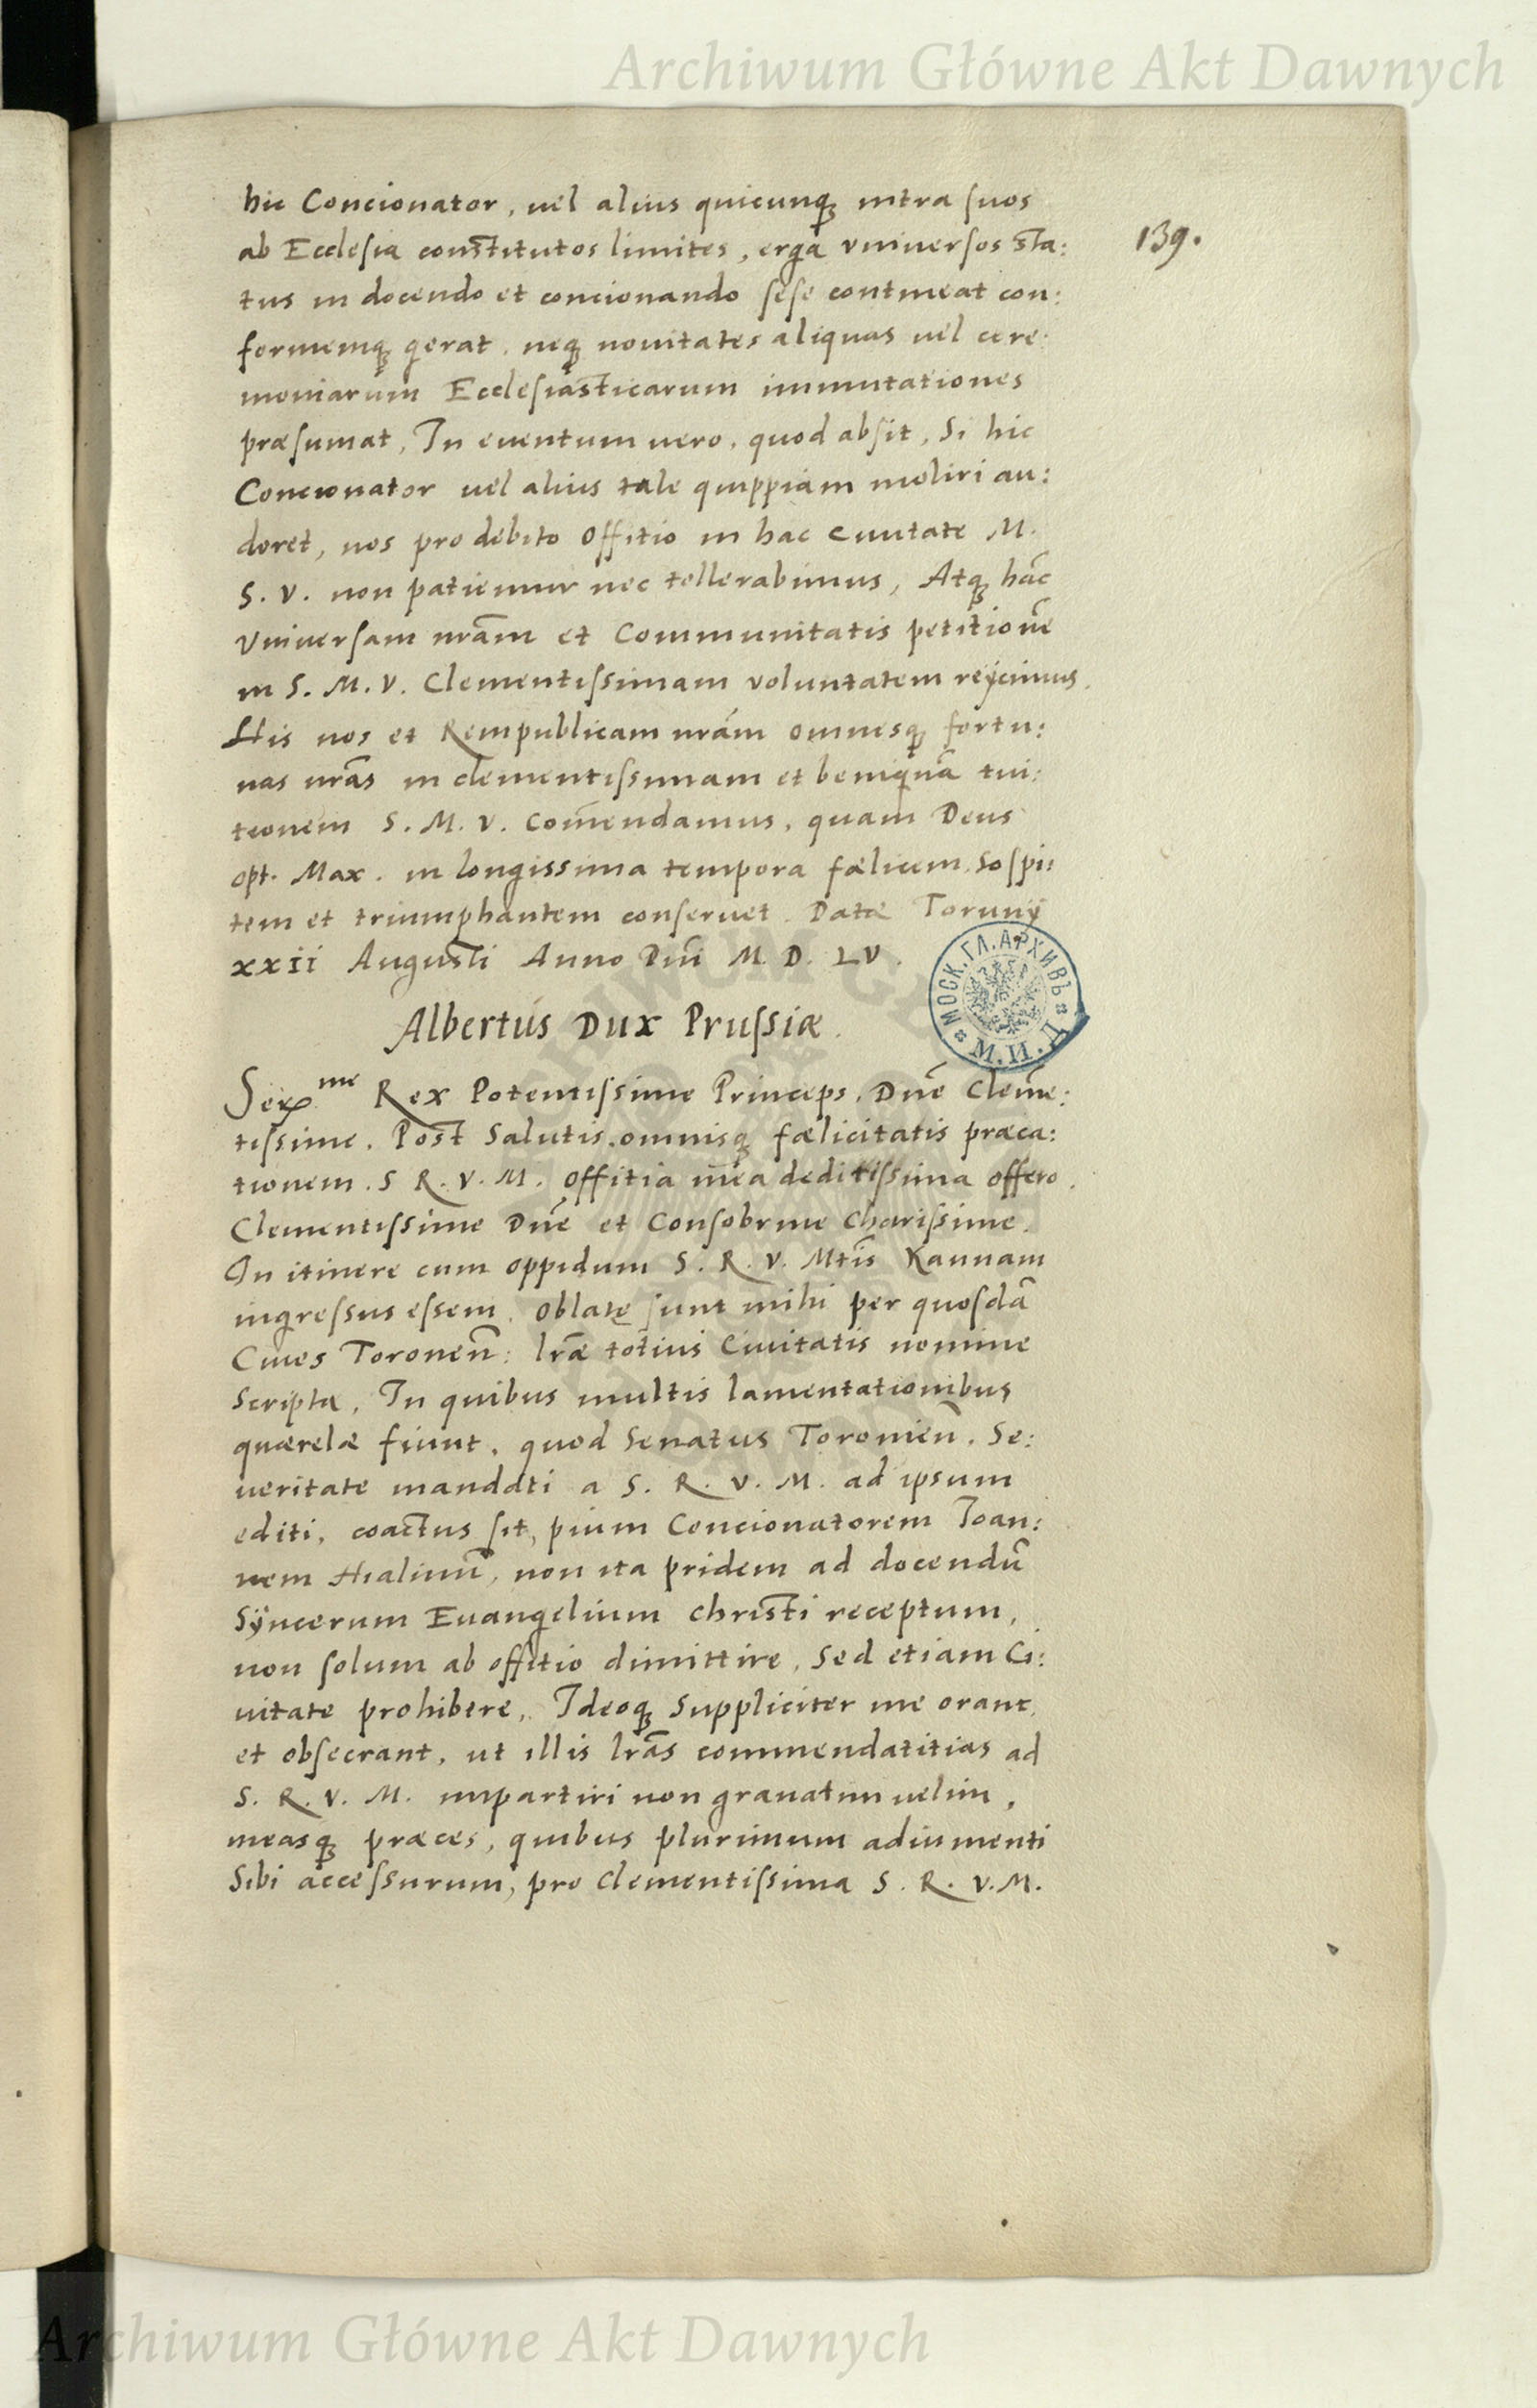 Archiwum Główne Akt Dawnych
hic Concionator, uel alius quicunq; intra suos
139.
ab Ecclesia constitutos limites, erga vniuersos sta:
tus in docendo et concionando sese contineat con:
formemq; gerat, neq; nouitates aliquas uel cere:
moniarum Ecclesiasticarum immutationes
præsumat, In euentum uero, quod absit, Si hic
Concionator uel alius tale quippiam moliri au:
deret, nos pro debito offitio in hac Ciuitate M.
S. V. non patiemur nec tollerabimus, Atq; hãc
Vniuersam nrãm et Communitatis petitionẽ
in S. M. V. Clementissimam voluntatem reÿcimus.
His nos et Rempublicam nrãm omnesq; fortu:
nas nrãs in clementissimam et benignã tui:
tionem S. M. V. Com̃endamus, quam Deus
opt. Max. in longissima tempora fælicem, Sospi:
tem et triumphantem conseruet. Datæ Torunÿ
xxii Augusti Anno Dñi M. D. LV.
МОСК. ГЛ. АРХИВЪ
М. И. Д.
Albertus Dux Prussiæ.
Ser^me Rex Potentissime Princeps, Dñe Clemẽ:
tissime. Post Salutis omnisq; fælicitatis præca:
tionem. S R. V. M. offitia mea deditissima offero.
Clementissime Dñe et Consobrine Charissime.
In itinere cum oppidum S. R. V. Mtis̃ Kaunam
ingressus essem, oblatę sunt mihi per quosdã
Ciues Toronen̄: lræ̃ totius Ciuitatis nomine
Scripta, In quibus multis lamentationibus
quærelæ fiunt, quod Senatus Toronien̄. Se:
ueritate mandati a S. R. V. M. ad ipsum
editi, coactus sit, pium Concionatorem Ioan:
nem Hialinũ, non ita pridem ad docendũ
Sÿncerum Euangelium Christi receptum,
non solum ab offitio dimittire, Sed etiam Ci:
uitate prohibere, Ideoq; Suppliciter me orant
et obsecrant, ut illis lrãs commendatitias ad
S. R. V. M. impartiri non grauatim uelim,
measq; præces, quibus plurimum adiumenti
Sibi accessurum, pro Clementissima S. R. V. M.
Archiwum Główne Akt Dawnych